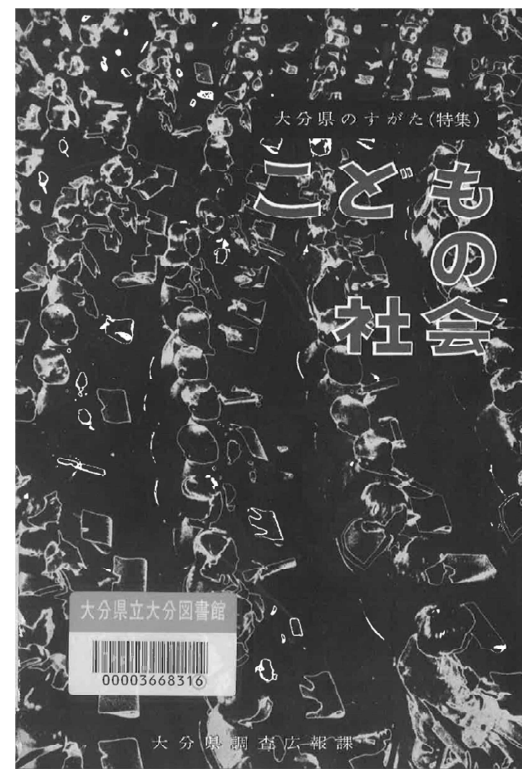 大分県のすがた(特集)
こども
の
社会
大分県立大分図書館
00003668316
大分県調査広報課